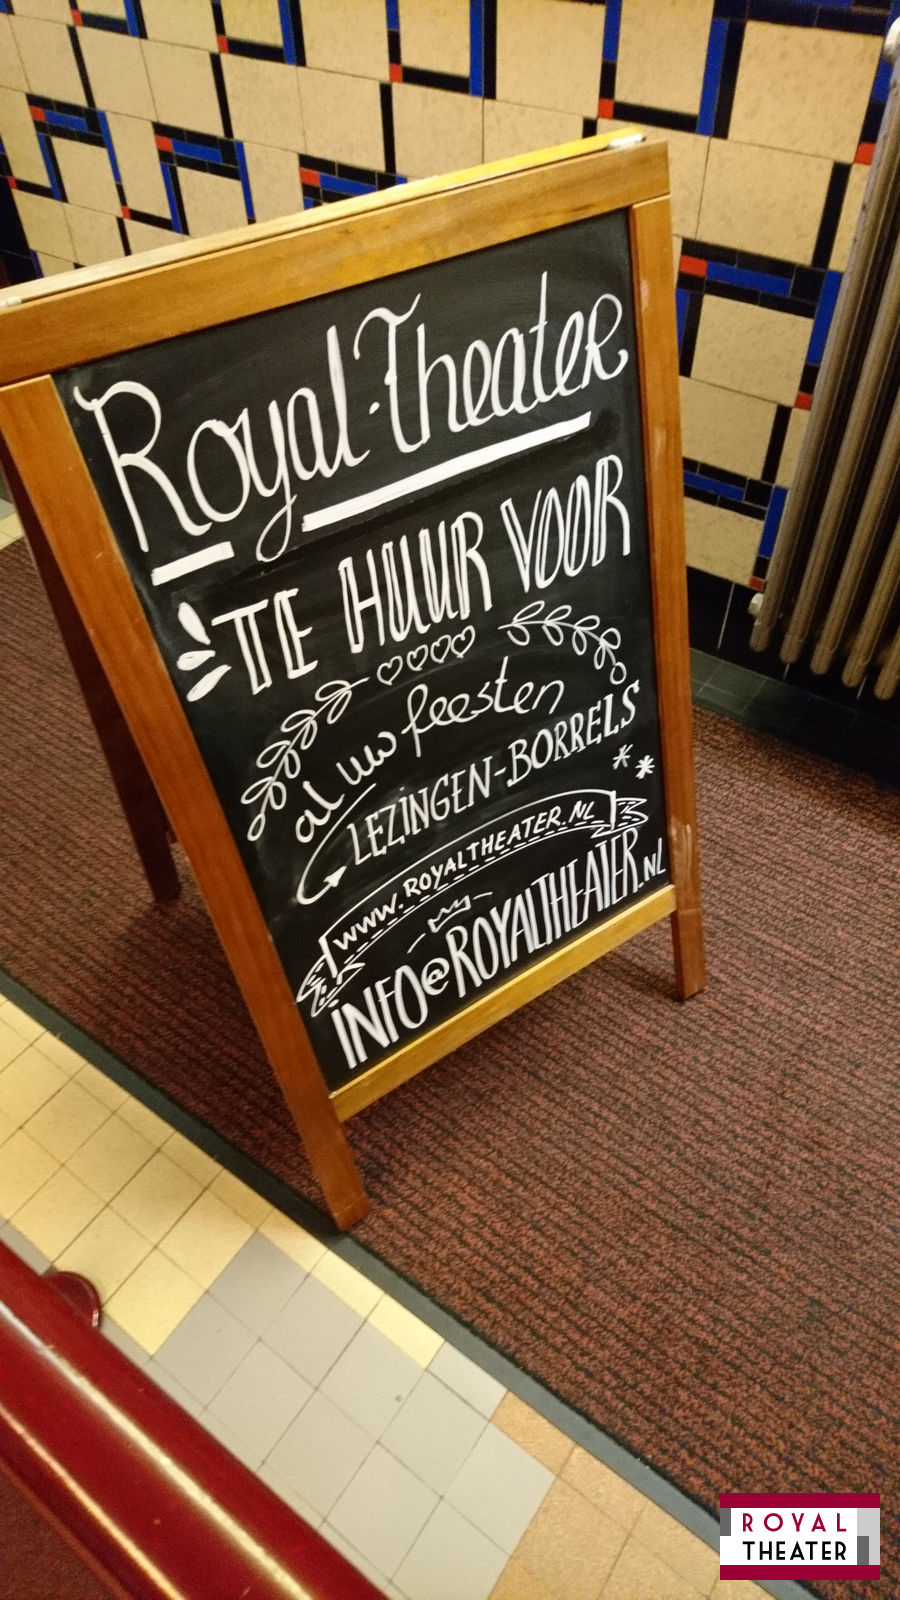 Royal·Theater
TE HUUR VOOR
al uw feesten
LEZINGEN-BORRELS
WWW.ROYALTHEATER.NL
INFO@ROYALTHEATER.NL
ROYAL
THEATER